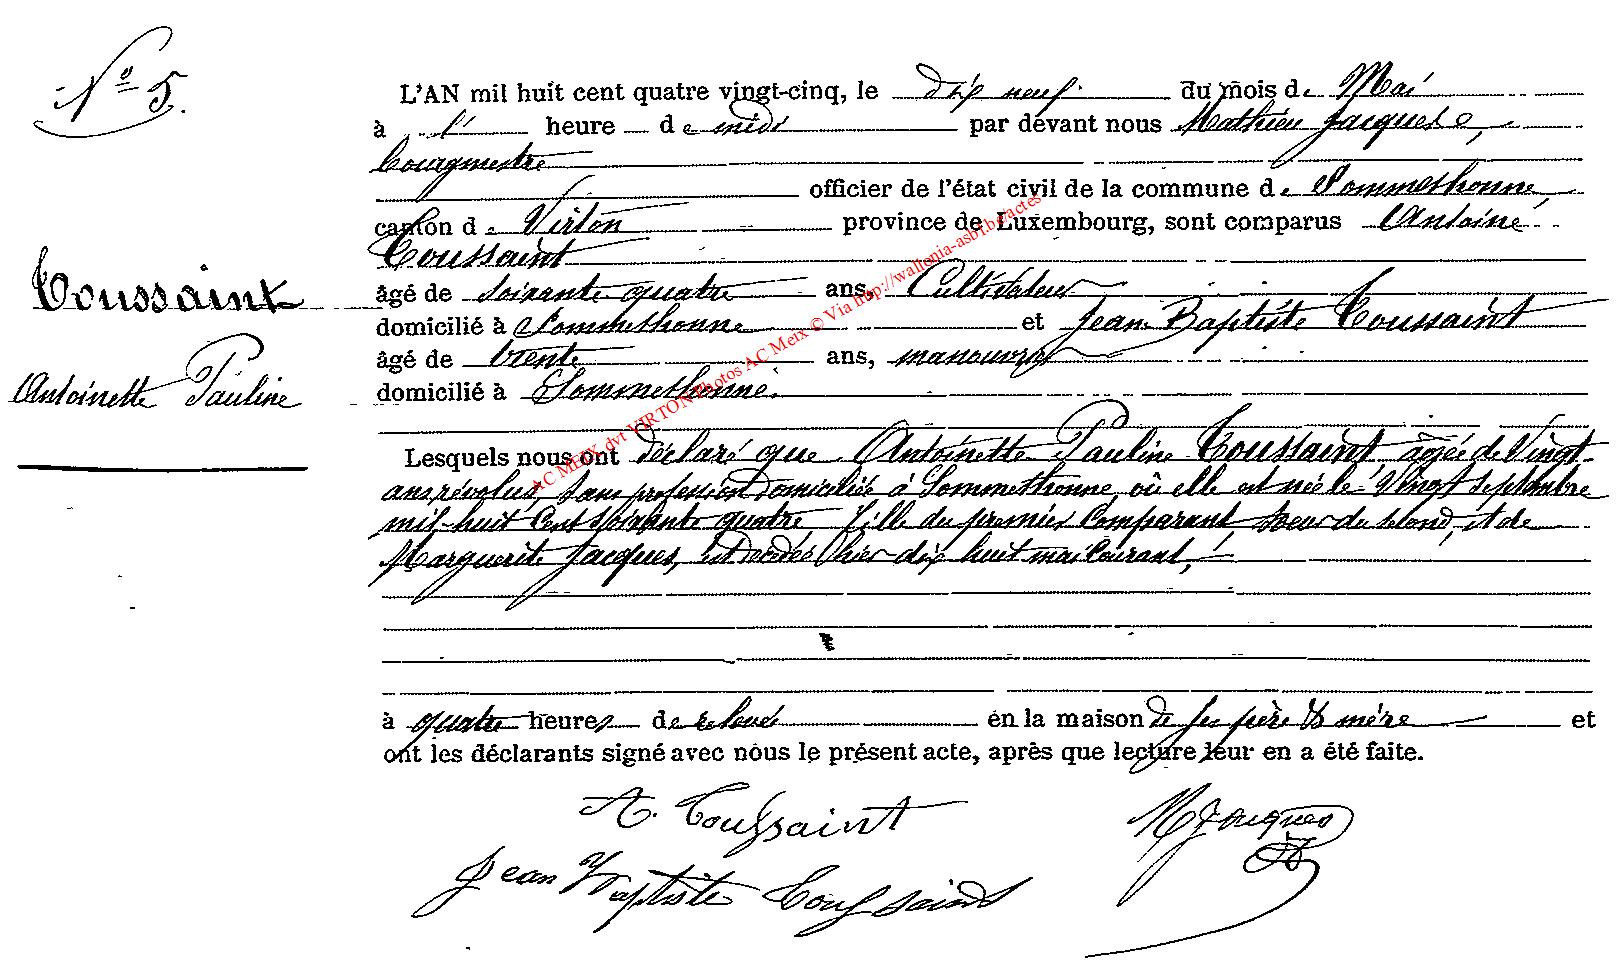 Nº 5.
L'AN mil huit cent quatre vingt-cinq, le dix neuf du mois de Mai
à l' heure de midi par devant nous Mathieu Jacques,
bourgmestre
officier de l'état civil de la commune de Sommethonne,
canton de Virton province de Luxembourg, sont comparus Antoine
Toussaint
Toussaint
âgé de soixante quatre ans, Cultivateur
domicilié à Sommethonne et Jean-Baptiste Toussaint
âgé de trente ans, manouvrier
Antoinette Pauline
domicilié à Sommethonne.
Lesquels nous ont déclaré que Antoinette Pauline Toussaint, âgée de Vingt
ans révolus, sans profession domiciliée à Sommethonne, où elle est née le Vingt Septembre
mil-huit Cent soixante quatre fille du premier Comparant, soeur du second, et de
Marguerite Jacques, est décédée hier dix huit mai Courant,
à quatre heures de relevée en la maison de ses père & mère et
ont les déclarants signé avec nous le présent acte, après que lecture leur en a été faite.
A. Toussaint
M Jacques
Jean Baptiste Toussaint
AC MEIX dvt VIRTON Photos AC Meix © Via http://wallonia-asbl.be/actes